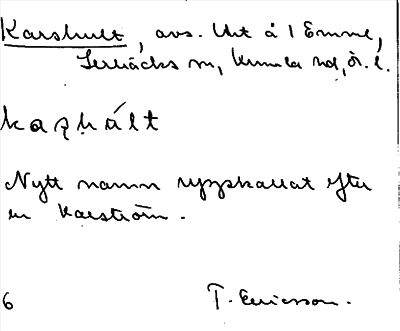 Karshult, avs. Uht å 1 Emme,
Lerbäcks sn, Kumla hd, Ör. l.
kaʂhúlt
Nytt namn uppkallat efter
en Karström.
6 T. Ericsson.